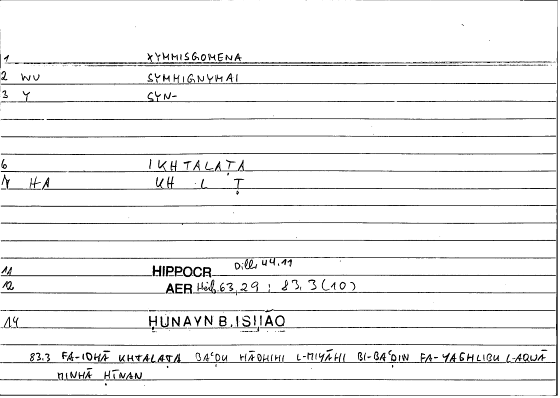 1 XYMMISGOMENA
2 WV SYMMIGNYMAI
3 Y SYN-
6 IKHTALAṬA
7 HA KH L Ṭ
11 HIPPOCR Dill, 44.11
12 AER Heib, 63,29 ; 83.3 (10)
14 ḤUNAYN B. ISḤĀQ
83.3 FA-IDHĀ KHTALAṬA BAʿḌU HĀDHIHI L-MIYĀHI BI-BAʿḌIN FA-YAGHLIBU L-AQWĀ
MINHĀ ḤĪNAN